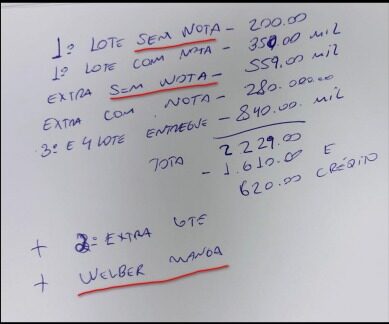 1º LOTE SEM NOTA - 200.00
1º LOTE COM NOTA - 350.00 MIL
EXTRA SEM NOTA - 559.00 MIL
EXTRA COM NOTA - 280.000.00
3º E 4 LOTE ENTREGUE - 840.00. MIL
TOTA 2229.00
- 1.610.00 E
620.00 CRÉDITO
+ 2º EXTRA LOTE
+ WELBER MANDA